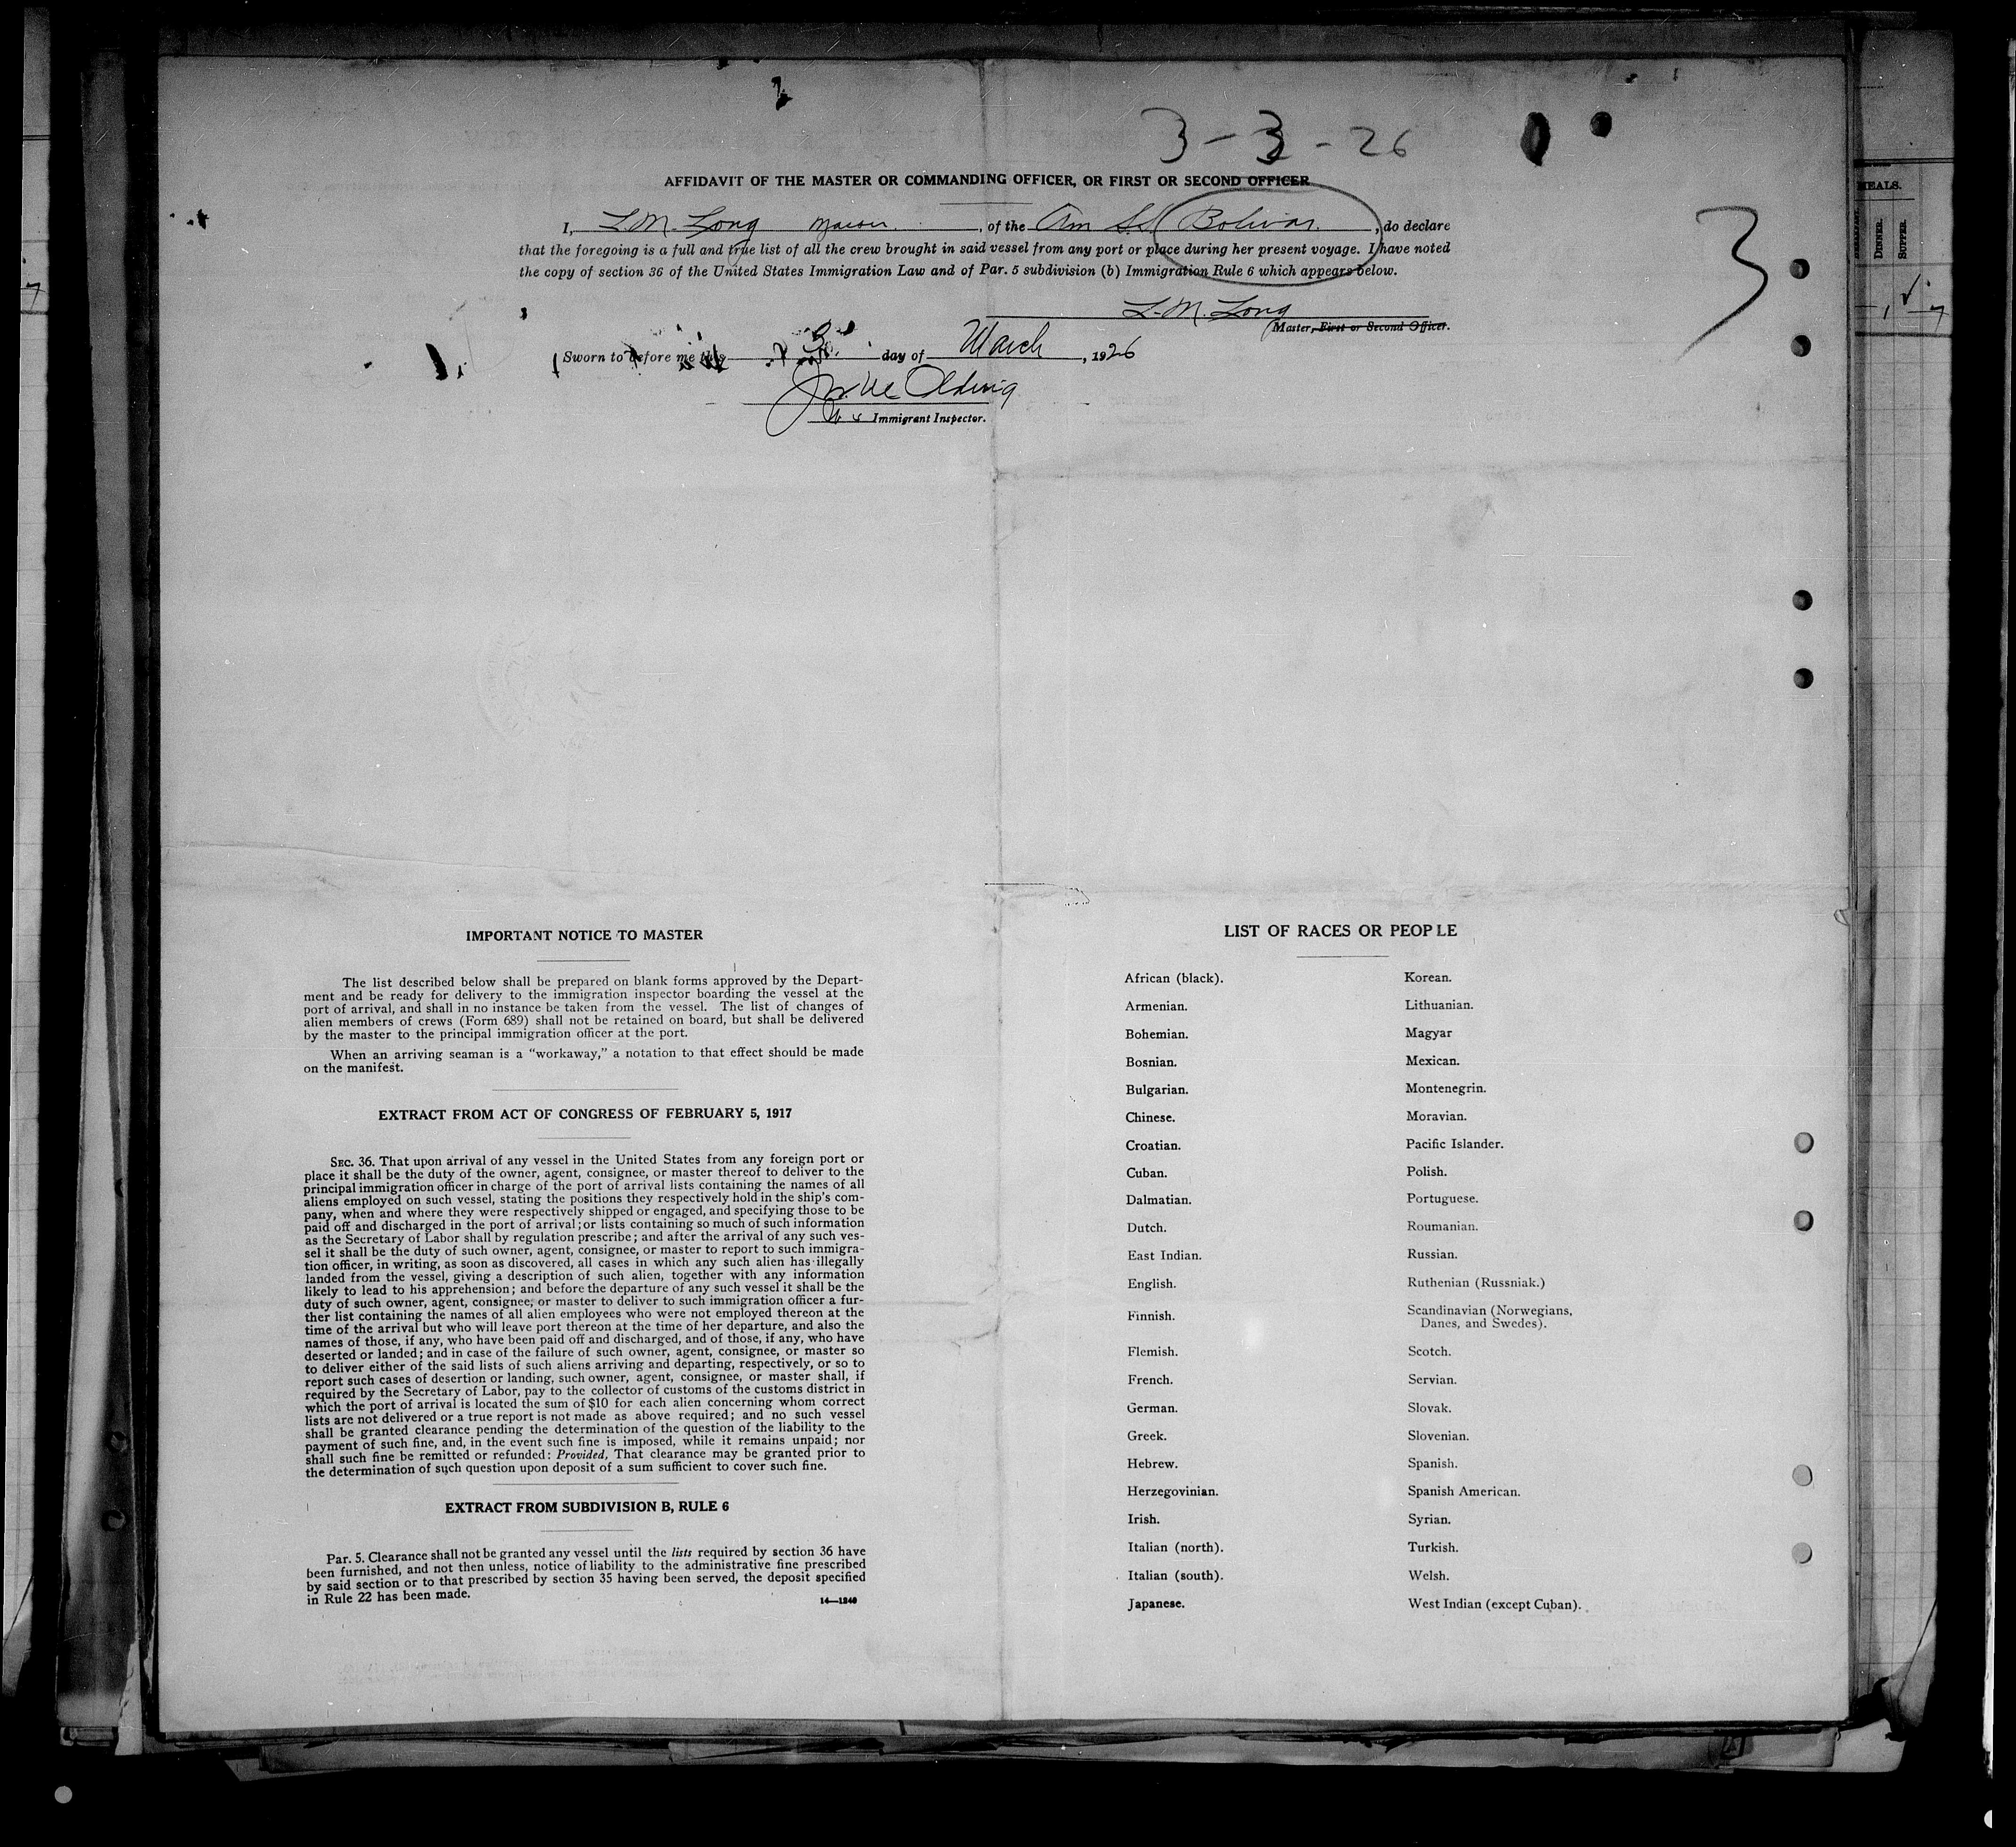 3-3-26
AFFIDAVIT OF THE MASTER OR COMMANDING OFFICER, OR FIRST OR SECOND OFFICER
I, L. M. Long Master, of the Am SS Bolivar, do declare
that the foregoing is a full and true list of all the crew brought in said vessel from any port or place during her present voyage. I have noted
the copy of section 36 of the United States Immigration Law and of Par. 5 subdivision (b) Immigration Rule 6 which appears below.
3
L. M. Long
Master, First or Second Officer.
Sworn to before me this 3 day of March, 1926
Immigrant Inspector.
MEALS.
DINNER.
SUPPER.
IMPORTANT NOTICE TO MASTER
The list described below shall be prepared on blank forms approved by the Depart-
ment and be ready for delivery to the immigration inspector boarding the vessel at the
port of arrival, and shall in no instance be taken from the vessel. The list of changes of
alien members of crews (Form 689) shall not be retained on board, but shall be delivered
by the master to the principal immigration officer at the port.
When an arriving seaman is a "workaway," a notation to that effect should be made
on the manifest.
EXTRACT FROM ACT OF CONGRESS OF FEBRUARY 5, 1917
SEC. 36. That upon arrival of any vessel in the United States from any foreign port or
place it shall be the duty of the owner, agent, consignee, or master thereof to deliver to the
principal immigration officer in charge of the port of arrival lists containing the names of all
aliens employed on such vessel, stating the positions they respectively hold in the ship's com-
pany, when and where they were respectively shipped or engaged, and specifying those to be
paid off and discharged in the port of arrival; or lists containing so much of such information
as the Secretary of Labor shall by regulation prescribe; and after the arrival of any such ves-
sel it shall be the duty of such owner, agent, consignee, or master to report to such immigra-
tion officer, in writing, as soon as discovered, all cases in which any such alien has illegally
landed from the vessel, giving a description of such alien, together with any information
likely to lead to his apprehension; and before the departure of any such vessel it shall be the
duty of such owner, agent, consignee, or master to deliver to such immigration officer a fur-
ther list containing the names of all alien employees who were not employed thereon at the
time of the arrival but who will leave port thereon at the time of her departure, and also the
names of those, if any, who have been paid off and discharged, and of those, if any, who have
deserted or landed; and in case of the failure of such owner, agent, consignee, or master so
to deliver either of the said lists of such aliens arriving and departing, respectively, or so to
report such cases of desertion or landing, such owner, agent, consignee, or master shall, if
required by the Secretary of Labor, pay to the collector of customs of the customs district in
which the port of arrival is located the sum of $10 for each alien concerning whom correct
lists are not delivered or a true report is not made as above required; and no such vessel
shall be granted clearance pending the determination of the question of the liability to the
payment of such fine, and, in the event such fine is imposed, while it remains unpaid; nor
shall such fine be remitted or refunded: Provided, That clearance may be granted prior to
the determination of such question upon deposit of a sum sufficient to cover such fine.
EXTRACT FROM SUBDIVISION B, RULE 6
Par. 5. Clearance shall not be granted any vessel until the lists required by section 36 have
been furnished, and not then unless, notice of liability to the administrative fine prescribed
by said section or to that prescribed by section 35 having been served, the deposit specified
in Rule 22 has been made.
14—1240
LIST OF RACES OR PEOPLE
African (black).
Armenian.
Bohemian.
Bosnian.
Bulgarian.
Chinese.
Croatian.
Cuban.
Dalmatian.
Dutch.
East Indian.
English.
Finnish.
Flemish.
French.
German.
Greek.
Hebrew.
Herzegovinian.
Irish.
Italian (north).
Italian (south).
Japanese.
Korean.
Lithuanian.
Magyar
Mexican.
Montenegrin.
Moravian.
Pacific Islander.
Polish.
Portuguese.
Roumanian.
Russian.
Ruthenian (Russniak.)
Scandinavian (Norwegians,
Danes, and Swedes).
Scotch.
Servian.
Slovak.
Slovenian.
Spanish.
Spanish American.
Syrian.
Turkish.
Welsh.
West Indian (except Cuban).